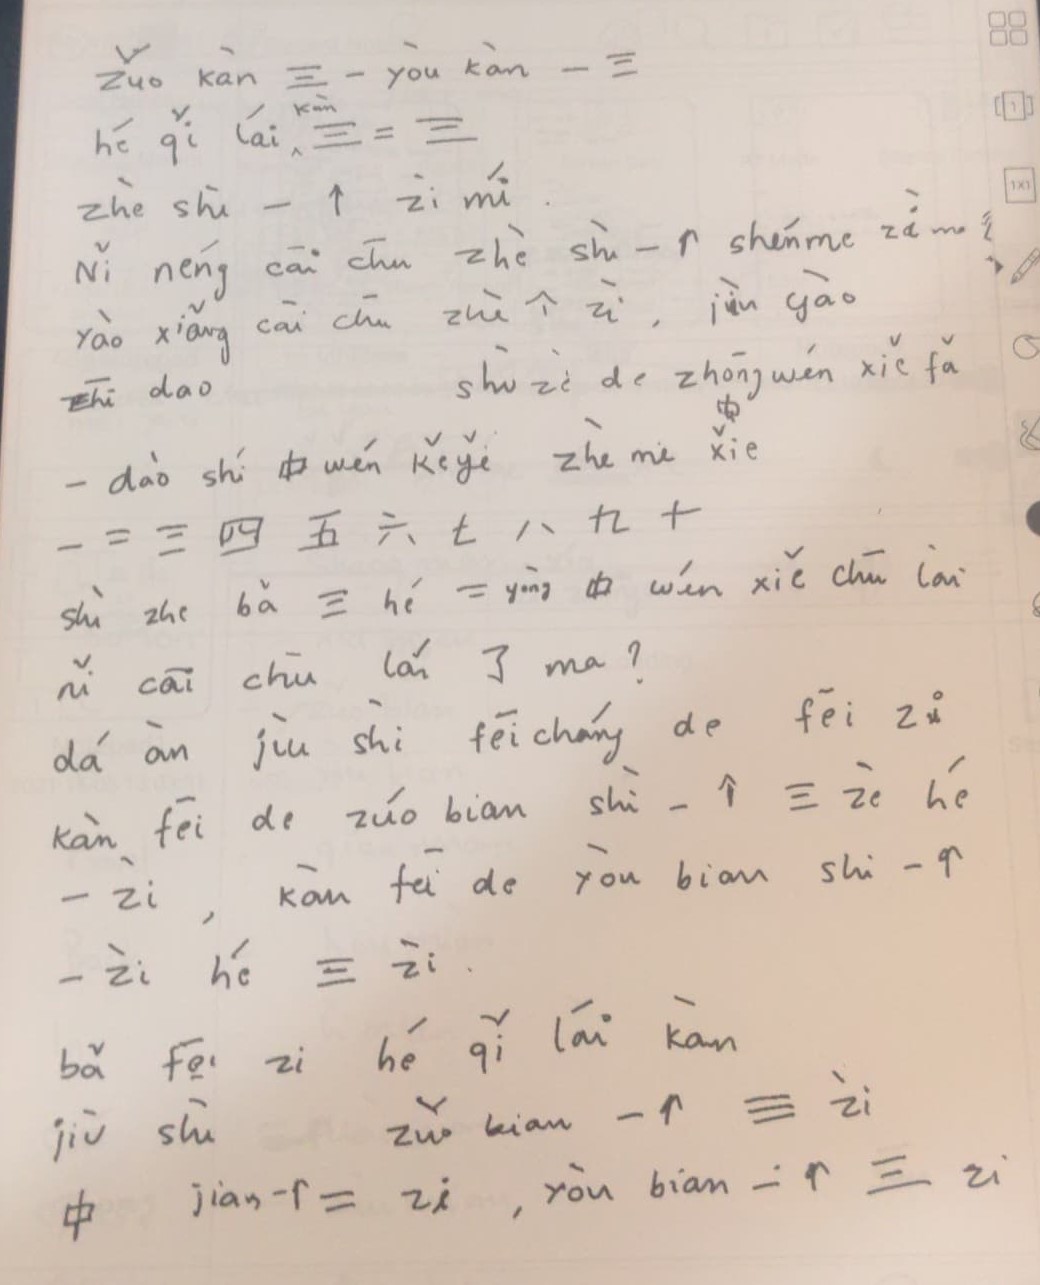 zǔo kàn 三 一 yòu kàn 一 三
hé qǐ lái kàn 三 = 三
zhè shì 一 个 zì mí .
Nǐ néng cāi chū zhè shì 一 个 shénme zì ma ?
Yào xiǎng cāi chū zhè 个 zì , jìu yào
zhī dao shù zì de zhōng wén xiě fǎ
一 dào shí 中 wén kěyǐ zhè me xiě
一 二 三 四 五 六 七 八 九 十
shì zhe bǎ 三 hé 二 yòng 中 wén xiě chū lái
nǐ cāi chū lái 了 ma ?
dá àn jìu shì fēi cháng de fēi zì
kàn fēi de zúo bian shì 一 个 三 zì hé
一 zì , kàn fēi de Yòu bian shì 一 个
一 zì hé 三 zì .
bǎ fēi zi hé qǐ lái kàn
jiù shì zǔo bian 一 个 三 zì
中 jian 一 个 二 zi , Yòu bian 一 个 三 zi